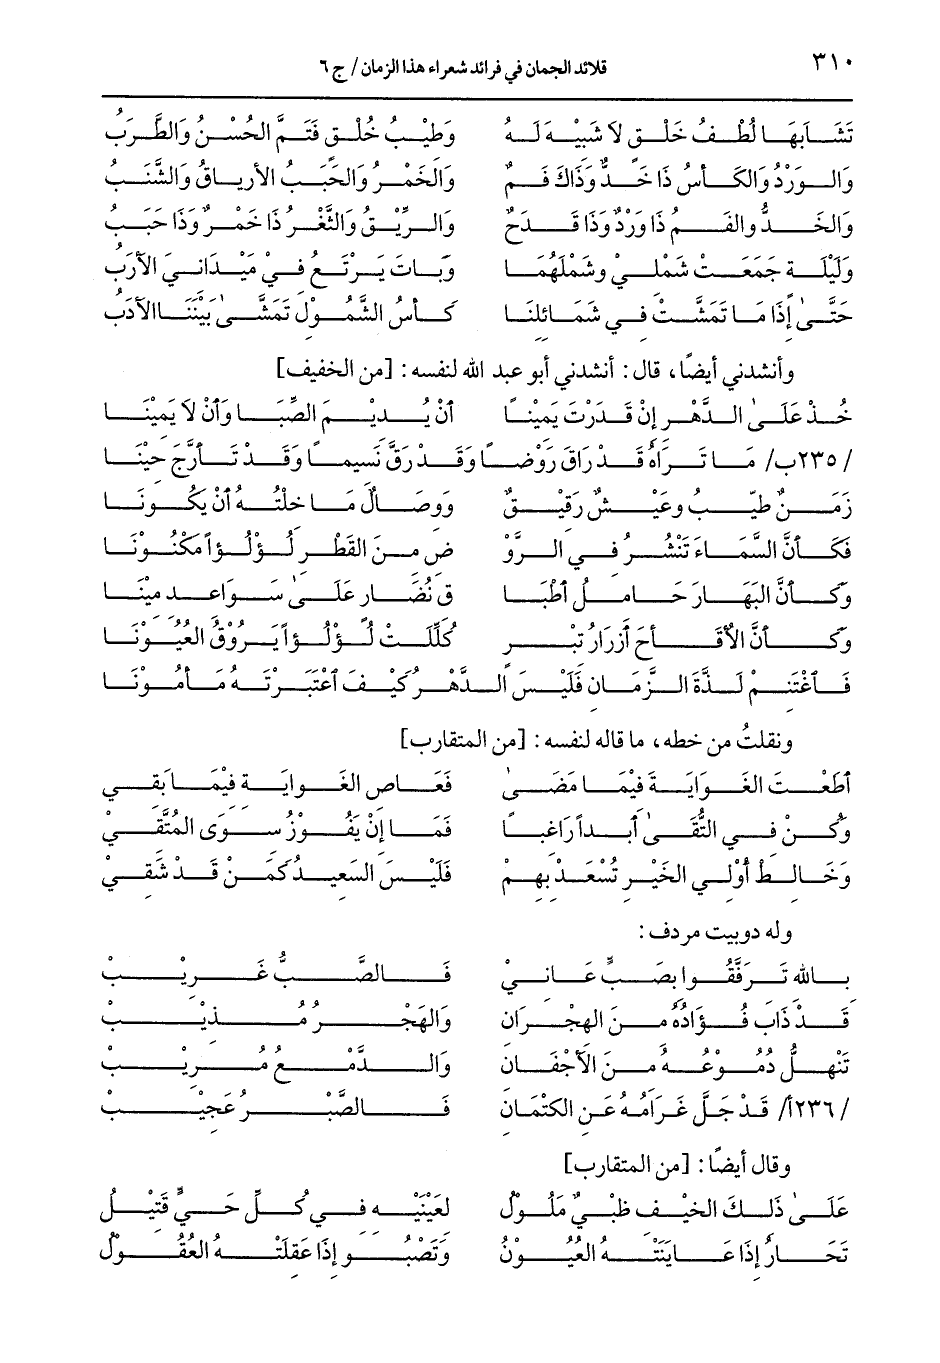 ٣١٠
قلائد الجمان في فرائد شعراء هذا الزمان / ج ٦
تَشَابَهَا لُطْفُ خَلْقٍ لاَ شَبِيْهَ لَهُ وَطِيْبُ خُلْقٍ فَتَمَّ الحُسْنُ وَالطَّرَبُ
وَالوَرْدُ وَالكَأْسُ ذَا خَدٌّ وَذَاكَ فَمٌ وَالخَمْرُ وَالحَبَبُ الأريَاقُ وَالشَّنَبُ
وَالخَدُّ والفَمُ ذَا وَرْدٌ وَذَا قَدَحٌ وَالرِّيْقُ وَالثَّغْرُ ذَا خَمْرٌ وَذَا حَبَبُ
وَلَيْلَةٍ جَمَعَتْ شَمْلِيْ وشَمْلَهُمَا وَبَاتَ يَرْتَعُ فِيْ مَيْدَانِيَ الأَرَبُ
حَتَّىٰ إِذَا مَا تَمَشَّتْ فِي شَمَائلنَا كَأسُ الشَّمُوْلِ تَمَشَّىٰ بَيْنَنَا الأَدَبُ
وأنشدني أيضًا، قال: أنشدني أبو عبد الله لنفسه: [من الخفيف]
خُذْ عَلَىٰ الدَّهْرِ إِنْ قَدَرْتَ يَمِيْنًا أَنْ يُدِيْمَ الصِّبَا وَأَنْ لاَ يَمِيْنَا
/ ٢٣٥ب/ مَا تَرَاهُ قَدْ رَاقَ رَوْضًا وَقَدْ رَقَّ نَسِيمًا وَقَدْ تَأَرَّجَ حِيْنَا
زَمَنٌ طَيِّبٌ وَعَيْشٌ رَقِيْقٌ وَوِصَالٌ مَا خِلْتُهُ أَنْ يَكُوْنَا
فَكَأَنَّ السَّمَاءَ تَنْشُرُ فِي الرَّوْ ضِ مِنَ القَطْرِ لُؤْلُؤاً مَكْنُوْنَا
وَكَأَنَّ البَهَارَ حَامِلُ أَطْبَا قِ نُضَارٍ عَلَىٰ سَوَاعِدِ مِيْنَا
وَكَأَنَّ الأَقَاحَ أَزْرَارُ تِبْرٍ كُلِّلَتْ لُؤْلُؤاً يَرُوْقُ العُيُوْنَا
فَاغْتَنِمْ لَذَّةَ الزَّمَانِ فَلَيْسَ الدَّهْرُ كَيْفَ اعْتَبَرْتَهُ مَأْمُوْنَا
ونقلتُ من خطه، ما قاله لنفسه: [من المتقارب]
أَطَعْتَ الغَوَايَةَ فِيْمَا مَضَىٰ فَعَاصِ الغَوايَةَ فِيْمَا بَقِي
وَكُنْ فِي التُّقَىٰ أَبداً رَاغبًا فَمَا إِنْ يَفُوْزُ سِوَى المُتَّقِيْ
وَخَالِطْ أُوْلِي الخَيْرِ تُسْعَدْ بِهِمْ فَلَيْسَ السَّعِيدُ كَمَنْ قَدْ شَقِي
وله دوبيت مردف:
بِاللهِ تَرَفَّقُوا بِصَبٍّ عَانِيْ فَالصَّبُّ غَرِيْبْ
قَدْ ذَابَ فُؤَادُهُ مِنَ الهِجْرَانِ وَالهَجْرُ مُذِيْبْ
تَنْهَلُّ دُمُوْعُهُ مِنَ الأَجْفَانِ وَالدَّمْعُ مُرِيْبْ
/ ٢٣٦أ/ قَدْ جَلَّ غَرَامُهُ عَنِ الكتْمَانِ فَالصَّبْرُ عَجِيْبْ
وقال أيضًا: [من المتقارب]
عَلَىٰ ذَلِكَ الخَيْفِ ظَبْيٌ مَلُوْلُ لِعَيْنَيْهِ فِي كُلِّ حَيٍّ قَتِيْلُ
تَحَارُ إِذَا عَايَنَتْهُ العُيُوْنُ وَتَصْبُو إِذَا عَقِلَتْهُ العُقُوْلُ